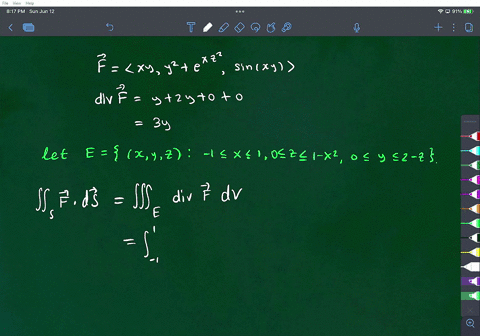 File Edit View
8:17 PM Sun Jun 12 91%
F⃗ = <xy, y² + e^{xz²}, sin(xy)>
div F⃗ = y+2y+0+0
= 3y
let E = { (x,y,z) : -1 ≤ x ≤ 1, 0 ≤ z ≤ 1-x², 0 ≤ y ≤ 2-z }.
∬_S F⃗ · dS⃗ = ∭_E div F⃗ dV
= ∫_{-1}^{1}